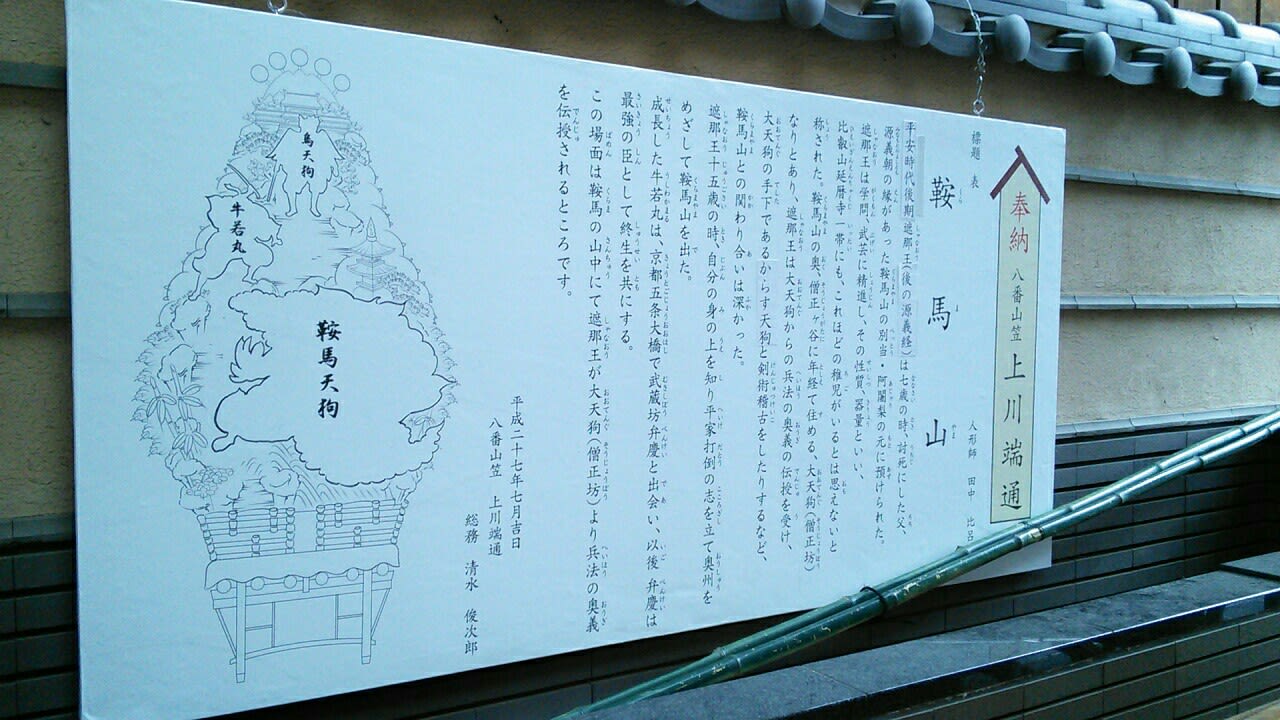 奉納 八番山笠 上川端通
標題 表
鞍馬山
人形師 田中 比呂
平安時代後期、遮那王(後の源義経)は七歳の時、討死にした父、
源義朝の縁があった鞍馬山の別当・阿闍梨の元に預けられた。
遮那王は学問、武芸に精進し、その性質、器量といい、
比叡山延暦寺一帯にも、これほどの稚児がいるとは思えないと
称された。鞍馬山の奥、僧正ヶ谷に年経て住める、大天狗(僧正坊)
なりとあり、遮那王は大天狗からの兵法の奥義の伝授を受け、
大天狗の手下であるからす天狗と剣術稽古をしたりするなど、
鞍馬山との関わり合いは深かった。
遮那王十五歳の時、自分の身の上を知り平家打倒の志を立て奥州を
めざして鞍馬山を出た。
成長した牛若丸は、京都五条大橋で武蔵坊弁慶と出会い、以後弁慶は
最強の臣として終生を共にする。
この場面は鞍馬の山中にて遮那王が大天狗(僧正坊)より兵法の奥義
を伝授されるところです。
平成二十七年七月吉日
八番山笠 上川端通
総務 清水 俊次郎
烏天狗
牛若丸
鞍馬天狗